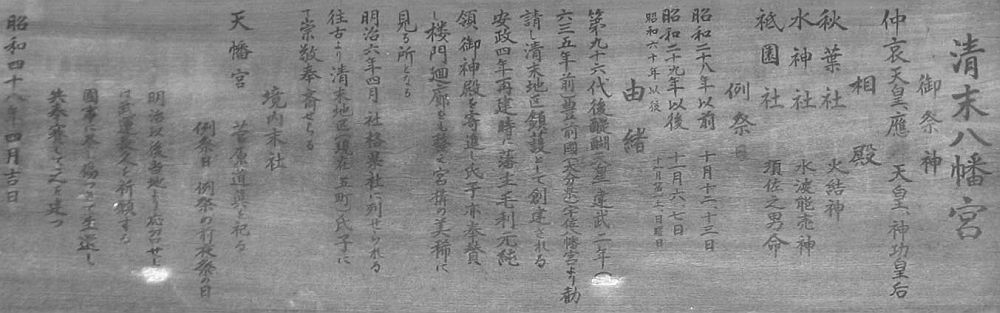 清末八幡宮
御祭神
仲哀天皇、應 天皇、神功皇后
相殿
秋葉社 火結神
水神社 水波能売神
祇園社 須佐之男命
例祭
昭和二十八年以前 十月十二、十三日
昭和二十九年以後 十月六、七日
昭和六十年以後 十月 土日曜日
由緒
第九十六代後醍醐天皇建武二年(
六三五年前豊前國(大分県)宇佐八幡宮より勧
請し清末地区鎮護として創建される
安政四年再建時に藩主毛利元純
領、御神殿を寄進し氏子亦奉賛
し楼門廻廊をも整え宮構の美稀に
見る所となる
明治六年四月社格郷社に列せられる
往古より清末地区現在五町の氏子に
て崇敬奉斎せらる
境内末社
天幡宮 菅原道眞を祀る
例祭日 例祭の前夜祭の日
明治以後当地より応召せし
は武運長久を祈願する
國事に 傷つき 生還し
共奉賽して之を建つ
昭和四十八年四月吉日